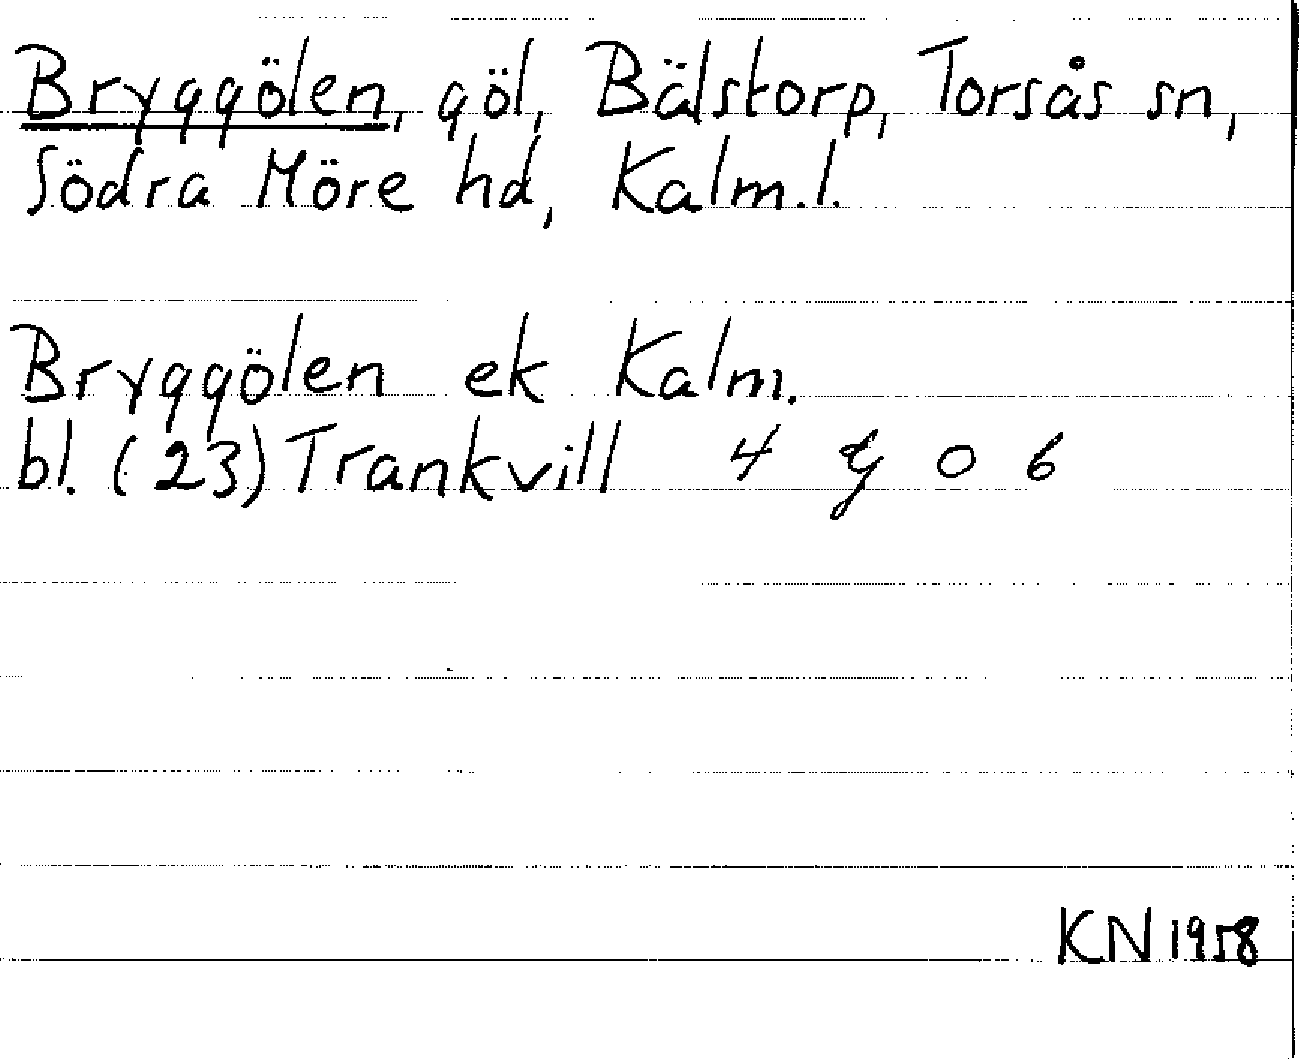 Bryggölen, göl, Bälstorp, Torsås sn,
Södra Möre hd, Kalm.l.
Bryggölen ek Kalm.
bl. (23) Trankvill 4 g 0 6
KN 1958